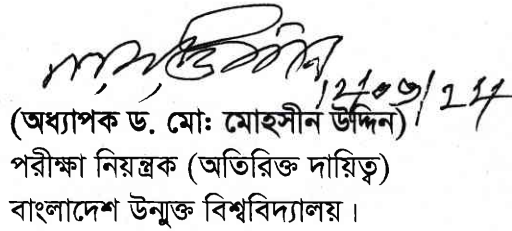 (অধ্যাপক ড. মো: মোহসীন উদ্দিন)
পরীক্ষা নিয়ন্ত্রক (অতিরিক্ত দায়িত্ব)
বাংলাদেশ উন্মুক্ত বিশ্ববিদ্যালয়।